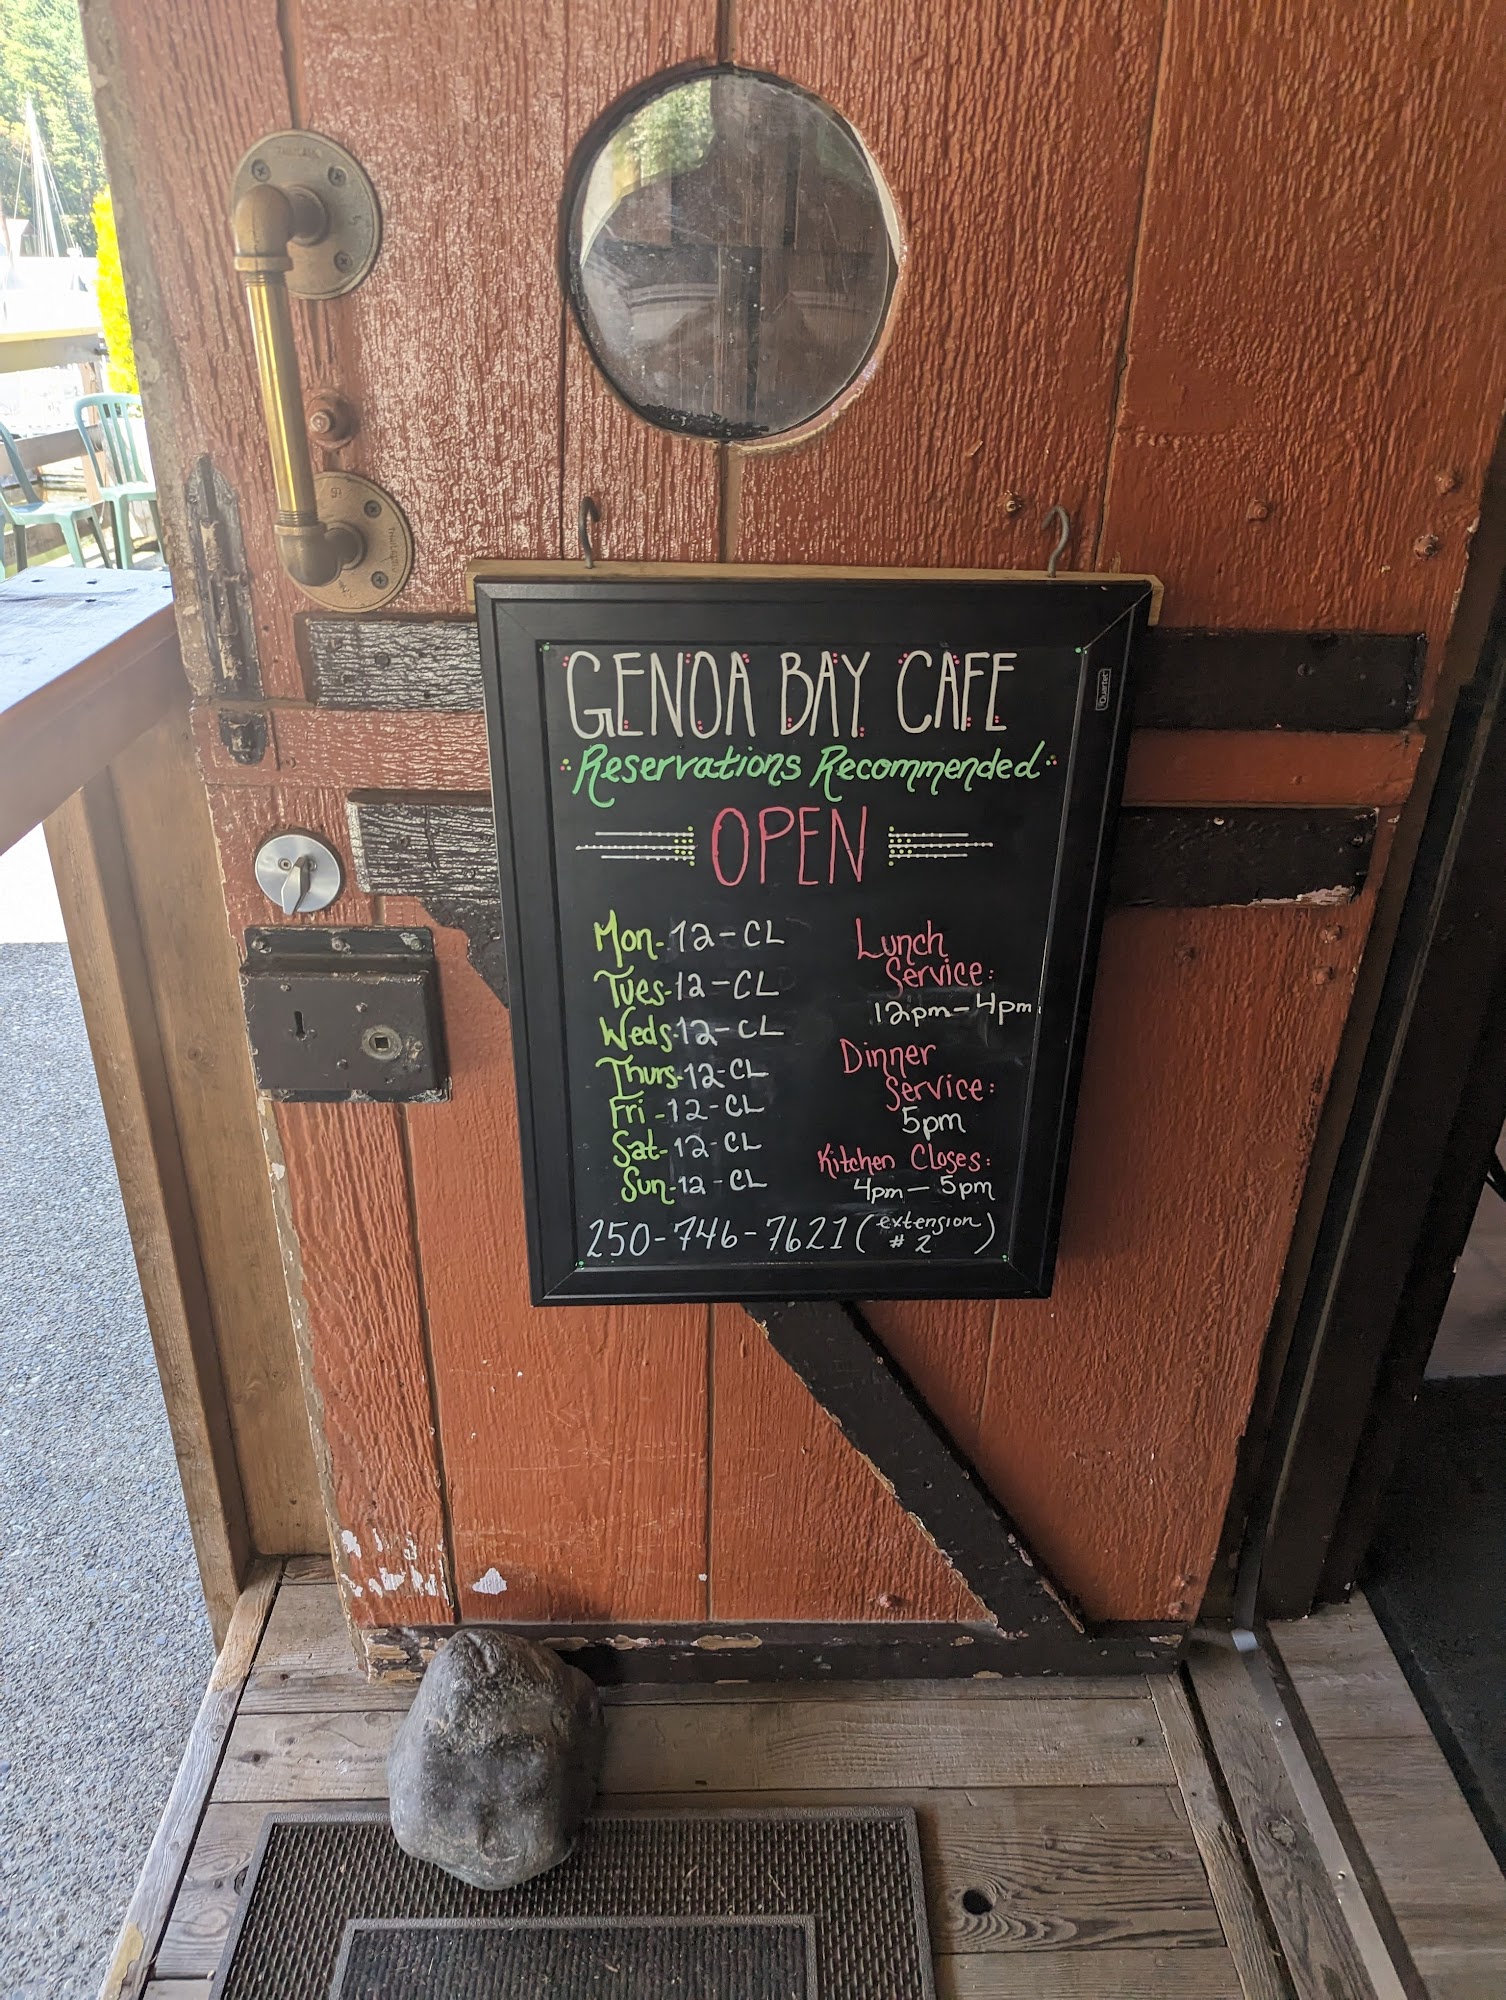 GENOA BAY CAFE
Reservations Recommended
OPEN
Mon-12-CL
Tues-12-CL
Weds-12-CL
Thurs-12-CL
Fri-12-CL
Sat-12-CL
Sun-12-CL
Lunch
Service:
12pm-4pm
Dinner
Service:
5pm
Kitchen Closes:
4pm-5pm
250-746-7621 (extension
# 2)
Quartet